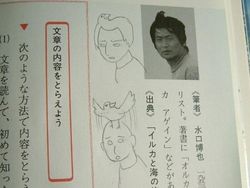 《筆者》 水口博也 一九
リスト。著書に『オルカ
カ アゲイン』などがあ
《出典》『イルカと海の
文章の内容をとらえよう
▼ 次のような方法で内容をとら
(1) 文章を読んで、初めて知っ